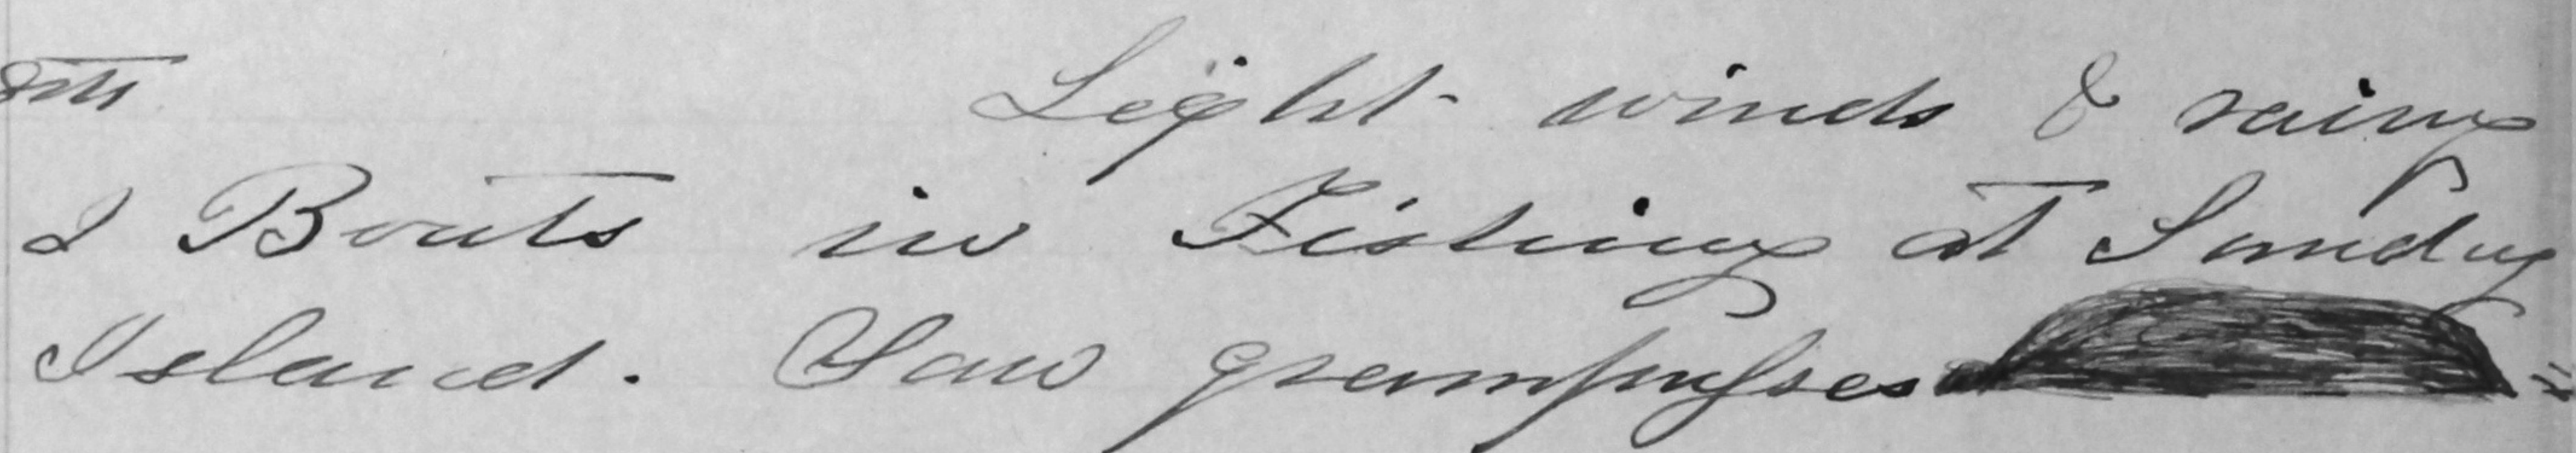 8th Light winds & rainy
2 Boats in Fishing at Sandy
Island. Saw grampusses